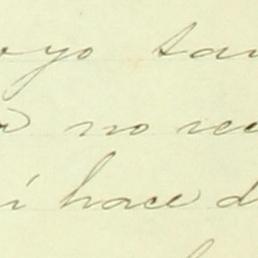 oyo tan
no rec
i hace d